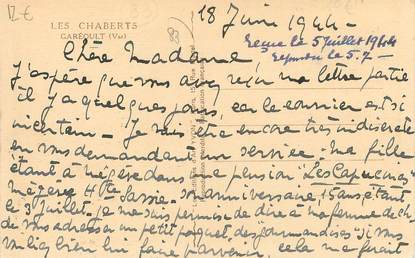 12€
LES CHABERTS
GARÉOULT (Var)
18 Juin 1944 -
Reçue le 5 Juillet 1944
Répondu le 5.7 -
Chère Madame
J'espère que vous avez reçu ma lettre partie
il y a quelques jours, car le courrier est si
incertain - Je vais être encore très indiscrète
en vous demandant un service - ma fille
étant à Megève dans une pension "Les Capucines"
Megève Hte Savoie - son anniversaire, 15 ans, étant
le 3 Juillet, je me suis permise de dire à ma femme de ch.
de vous adresser un petit paquet, des gourmandises - si vous
vouliez bien lui faire parvenir, cela me ferait